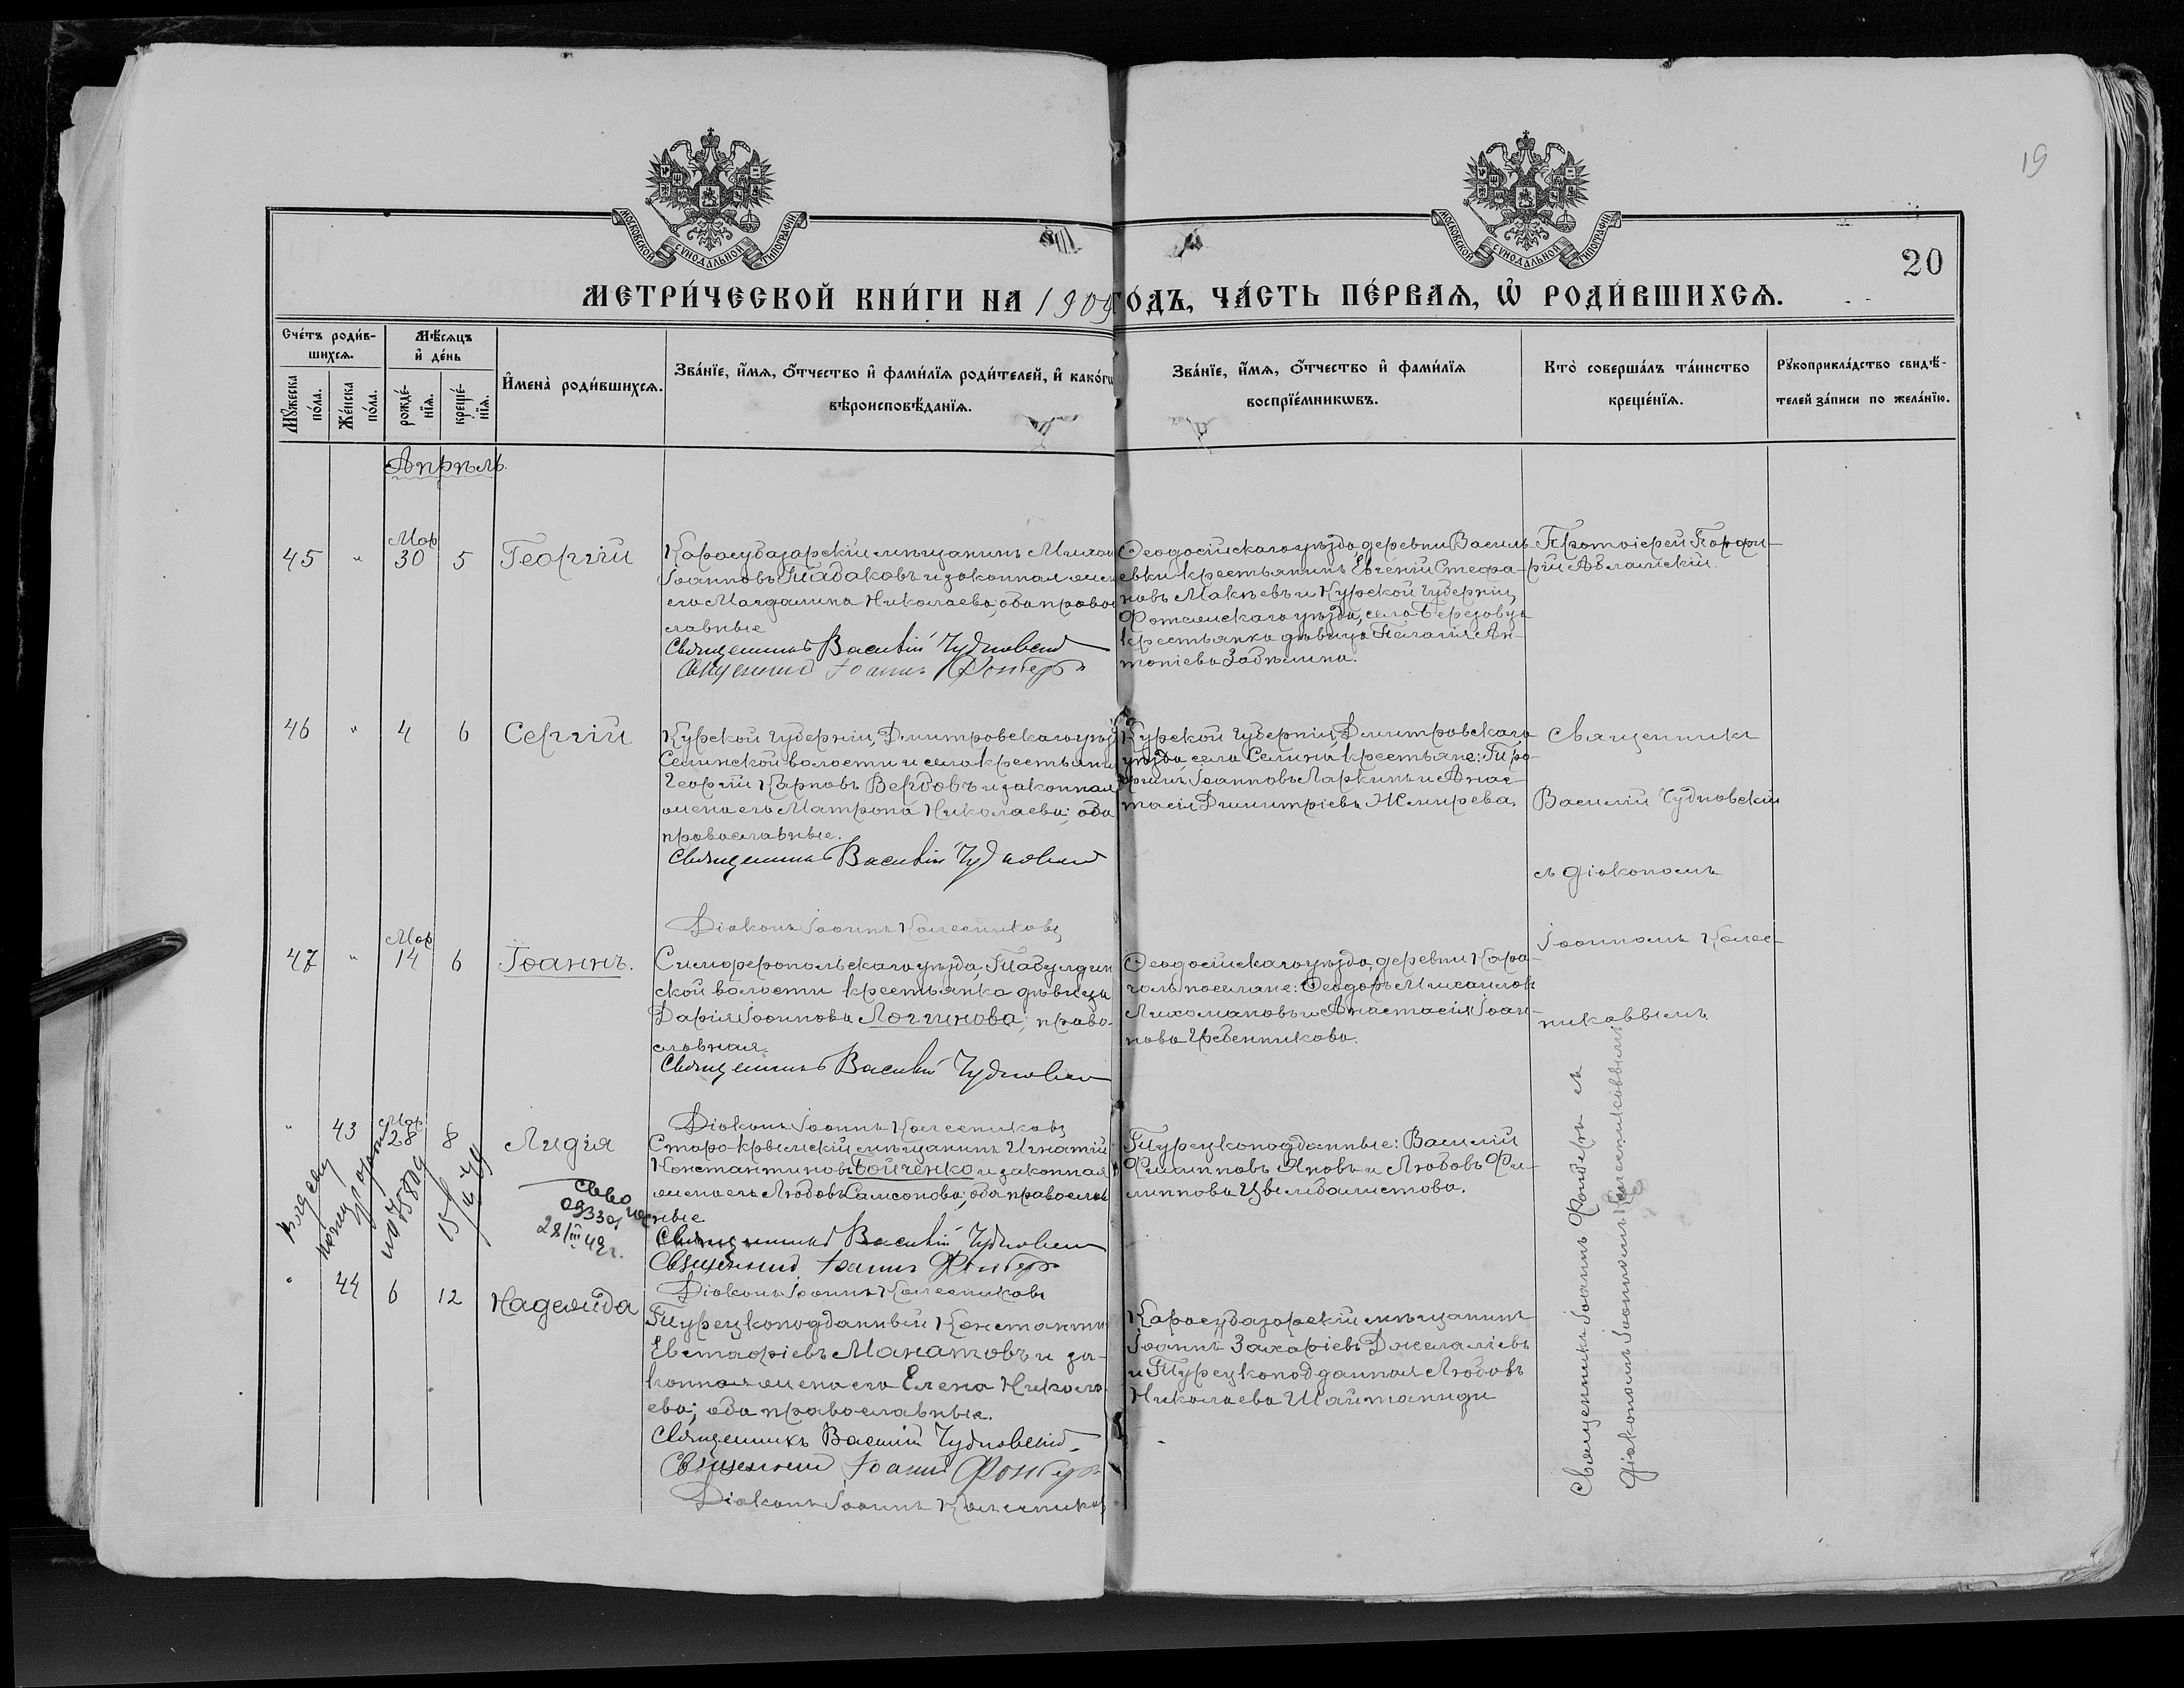 19
20
МОСКОВСКОЙ СѴНОДАЛЬНОЙ ТИПОГРАФІИ
МОСКОВСКОЙ СѴНОДАЛЬНОЙ ТИПОГРАФІИ
МЕТРИ́ЧЕСКОЙ КНИ́ГИ НА 1909 ГО́ДЪ, ЧА́СТЬ ПЕ́РВАѦ, Ѡ҆ РОДИ́ВШИХСѦ.
Сче́тъ роди́в-
шихсѧ.
Мꙋ́жеска
по́ла.
Же́нска
по́ла.
Мѣ́сѧцъ
и҆ де́нь
рожде́-
нїѧ.
креще́-
нїѧ.
И҆мена̀ роди́вшихсѧ.
Зва́нїе, и҆́мѧ, ѻ҆́тчество и҆ фами́лїѧ роди́телей, и҆ како́гѡ
вѣроисповѣ́данїѧ.
Зва́нїе, и҆́мѧ, ѻ҆́тчество и҆ фами́лїѧ
воспрїе́мникѡвъ.
Кто̀ соверша́лъ та́инство
креще́нїѧ.
Рꙋкоприкла́дство свидѣ́-
телей за́писи по жела́нїю.
Апрѣль.
45 " Мар 30 5 Георгій
Карасубазарскій мѣщанинъ Михаи
Іоанновъ Табаковъ и законная жен
его Магдалина Николаева; оба право
славные
Священникъ Василій Чудновскій
Священникъ Іоаннъ Фонберъ
Ѳеодосійскаго уѣзда, деревни Василь-
евки крестьянинъ Евгеній Стефа-
новъ Макѣевъ и Курской губерніи,
уѣзда, села Березовца
крестьянка дѣвица Пелагія Ан-
тоніева
Протоіерей Порфи-
рій
46 " 4 6 Сергій
Курской губерніи, Дмитровскаго уѣз
Селинской волости и села крестьяни
Георгій Карповъ Вербовъ и законная
жена его Матрона Николаева; оба
православные.
Священникъ Василій Чудновскій
Діаконъ Іоаннъ Колесниковъ
Курской губерніи, Дмитровскаго
уѣзда, села Селина крестьяне: Тро-
фимъ Іоанновъ Ларкинъ и Анас-
тасія Димитріева Жмирева.
Священникъ
Василій Чудновскій
съ діакономъ
Іоанномъ Колес-
никовымъ
47 " Мар 14 6 Іоаннъ.
Симферопольскаго уѣзда, Табулдин
ской волости крестьянка дѣвица
Дарія Іоаннова Логгинова; право-
славная.
Священникъ Василій Чудновскій
Діаконъ Іоаннъ Колесниковъ
Ѳеодосійскаго уѣзда, деревни Кара-
голь поселяне: Ѳеодоръ Михаилов
Лихомановъ и Анастасія Іоан-
нова Гребенникова.
" 43 Мар 28 8 Лидія
Старо-Крымскій мѣщанинъ Игнатій
Константиновъ Бойченко и законная
жена его Любовь Самсонова; оба православ
ные.
Священникъ Василій Чудновскій
Священникъ Іоаннъ Фонберъ
Діаконъ Іоаннъ Колесниковъ
Турецкоподданные: Василій
Филипповъ Яновъ и Любовь Фи-
липпова
28/III 49 г.
Священникъ Іоаннъ Фонберъ съ
діакономъ Іоанномъ Колесниковымъ
" 44 6 12 Надежда
Турецкоподданный Константин
Евстафіевъ Манатовъ и за-
конная жена его Елена Никола
ева; оба православные.
Священникъ Василій Чудновскій
Священникъ Іоаннъ Фонберъ
Діаконъ Іоаннъ Колесников
Карасубазарскій мѣщанинъ
Іоаннъ Захаріевъ Джелаліевъ
и Турецкоподданная Любовь
Николаева Шайтаниди